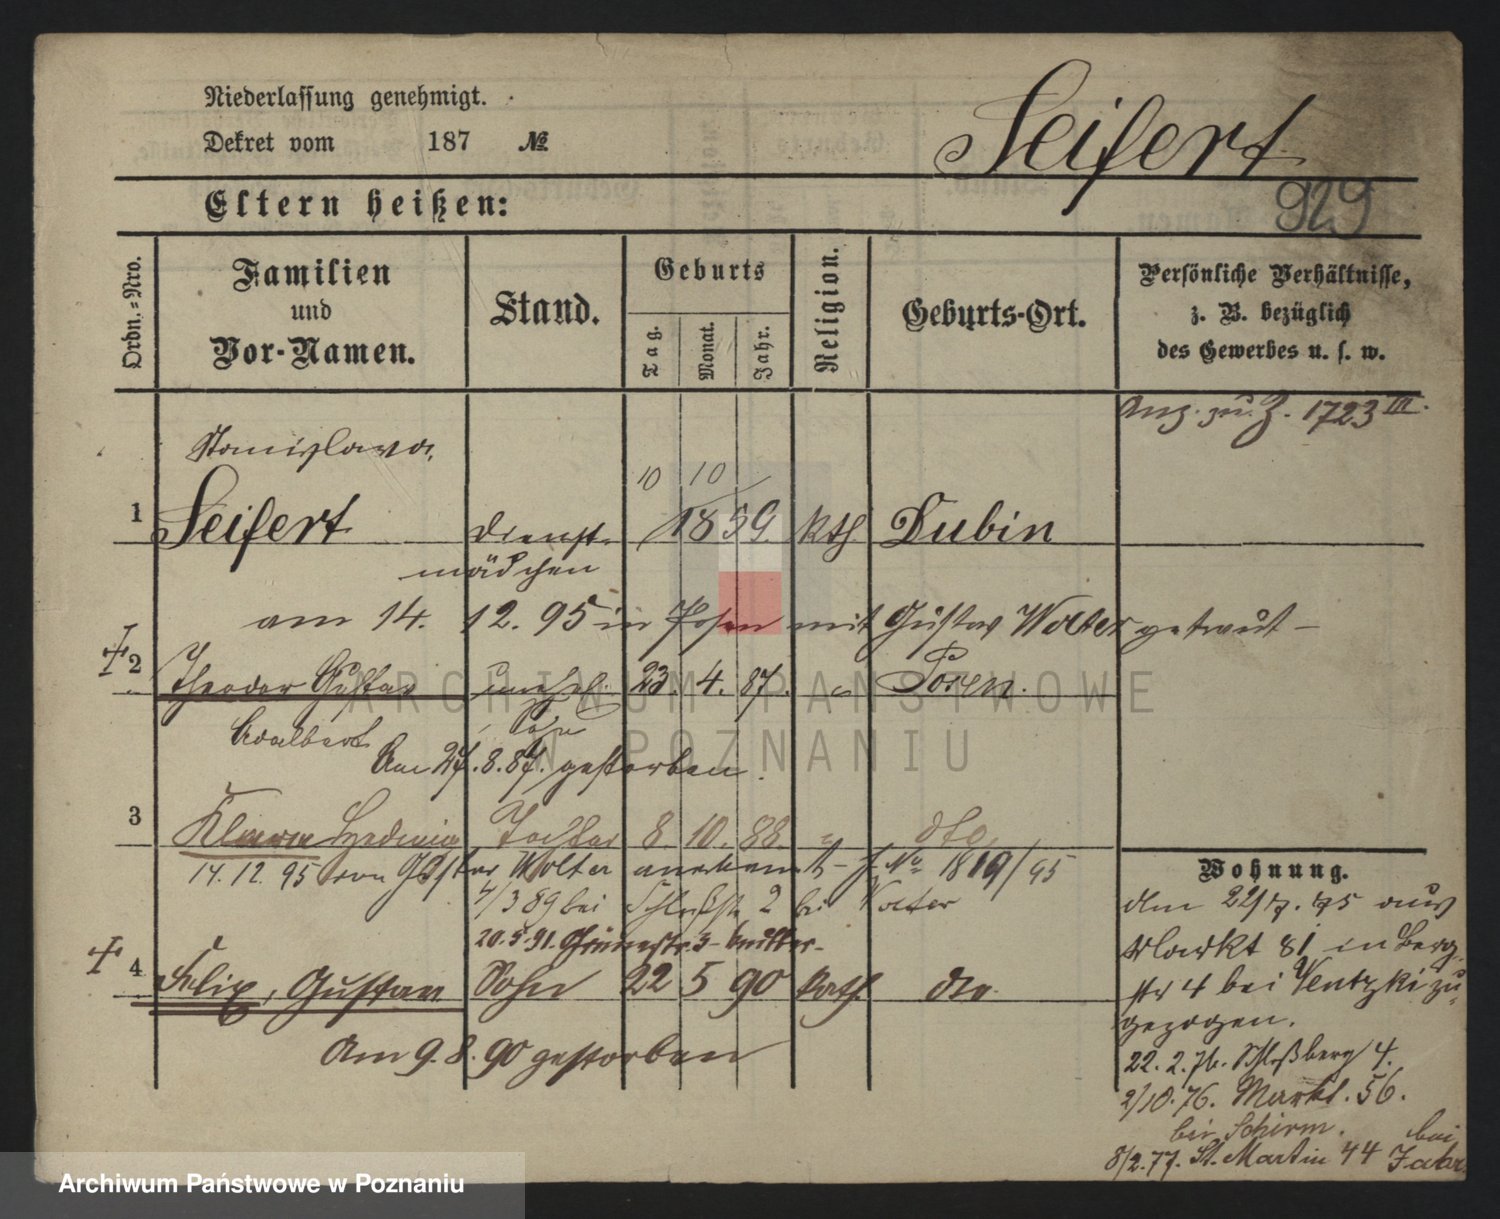 Niederlassung genehmigt.
Dekret vom 187 №
Seifert
929
Eltern heißen:
Ordn.-Nro.
Familien
und
Vor-Namen.
Stand.
Geburts
Tag.
Monat.
Jahr.
Religion.
Geburts-Ort.
Persönliche Verhältnisse,
z. B. bezüglich
des Gewerbes u. s. w.
Anz. zu. Z. 1723 III.
Stanislawa,
10 10
1 Seifert Dienst- 1859. Kth. Dubin
mädchen
am 14. 12. 95 in Posen mit Gustav Wolter getraut –
2 Theodor Gustav unehel. 23. 4. 87. " Posen.
Adalbert Sohn
Am 27. 8. 87. gestorben.
3 Klara Hedwig Tochter 8. 10. 88. " dto.
14. 12. 95 von Gustav Wolter anerkannt – J. No 1819/95
4/3 89 bei 2 bei Wolter
20. 5. 91. Grünestr. 3
4 Felix, Gustav Sohn 22 5 90 kath. dto
Am 9. 8. 90 gestorben
Wohnung.
den 22/7. 75 aus
Markt 81 in Berg-
str 4 bei Wentzki zu-
gezogen.
22. 2. 76. Schloßberg 4.
2/10. 76. Markt. 56.
bei Schirm.
8/2. 77. St. Martin 44 bei
ARCHIWUM PAŃSTWOWE
W POZNANIU
Archiwum Państwowe w Poznaniu